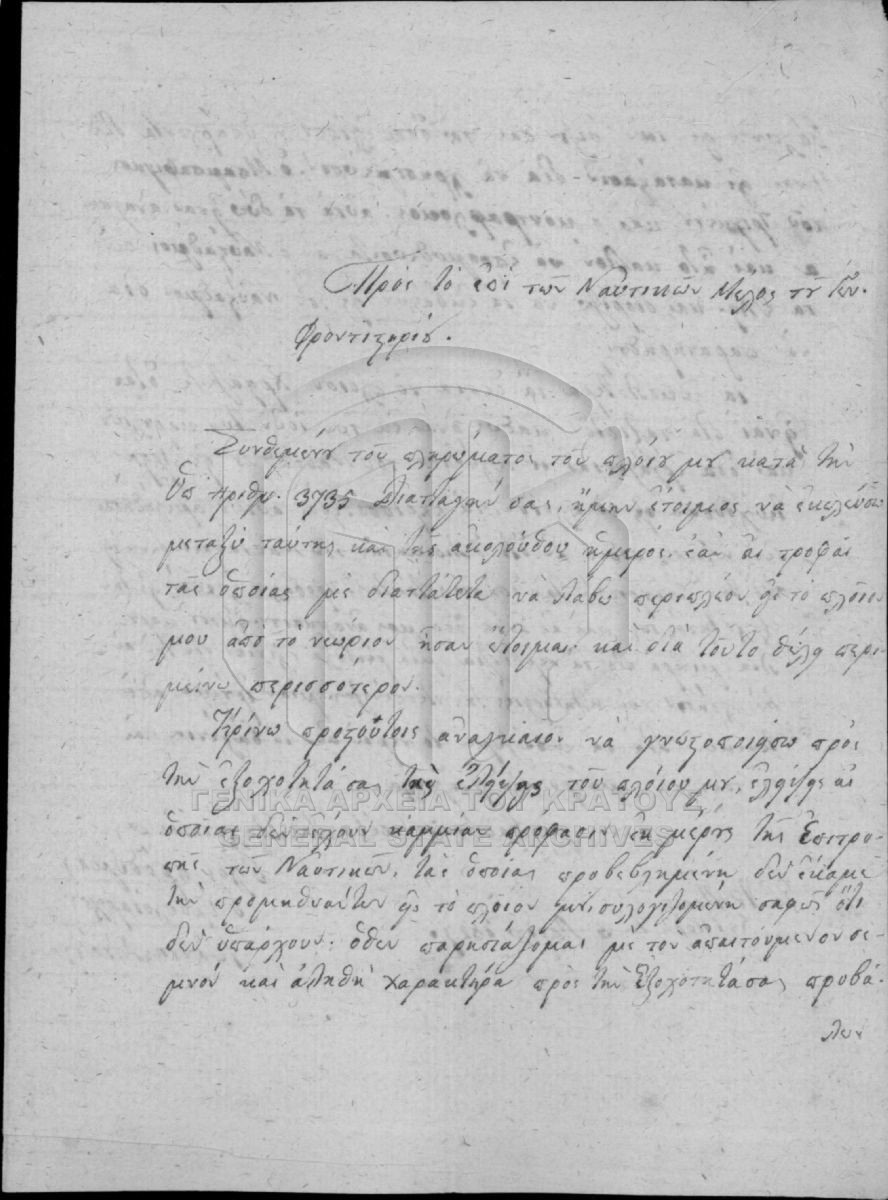 Πρὸς τὸ ἐπὶ τῶν Ναυτικῶν Μέλος τοῦ Γεν.
Φροντιστηρίου.
Συνθεμένου τοῦ πληρώματος τοῦ πλοίου μου κατὰ τὴν
ὑπ ἀριθμ. 3735 Διαταγήν σας, ἤμην ἕτοιμος νὰ ἐκπλεύσω
μεταξὺ ταύτης καὶ τῆς ἀκολούθου ἡμέρας. ἐὰν αἱ τροφαὶ
τὰς ὁποίας μὲ διατάτετε νὰ λάβω περιπλέον εἰς τὸ πλοῖον
μου ἀπὸ τὸ νεώριον ἦσαν ἕτοιμαι. καὶ διὰ τοῦτο θέλω περι
μείνω περισσότερον.
Κρίνω προςτούτοις ἀναγκαῖον νὰ γνωστοποιήσω πρὸς
τὴν ἐξοχότητά σας τὰς ἐλλείψεις τοῦ πλοίου μου, ἐλλείψεις αἱ
ὁποίαι δὲν ἔχουν καμμίαν πρόφασιν ἐκ μέρους τῆς Ἐπιτρο-
πῆς τῶν Ναυτικῶν, τὰς ὁποίας προβεβλημένη δὲν ἔκαμε
τὴν προμήθειάν των εἰς τὸ πλοῖον μου, συλογιζομένη σαφῶς ὅτι
δὲν ὑπάρχουν: ὅθεν παρησιάζομαι μὲ τὸν ἀπαιτούμενον σε-
μνὸν καὶ ἀληθῆ χαρακτῆρα πρὸς τὴν Ἐξοχότητά σας προβά-
λων
ΓΕΝΙΚΑ ΑΡΧΕΙΑ ΤΟΥ ΚΡΑΤΟΥΣ
GENERAL STATE ARCHIVES